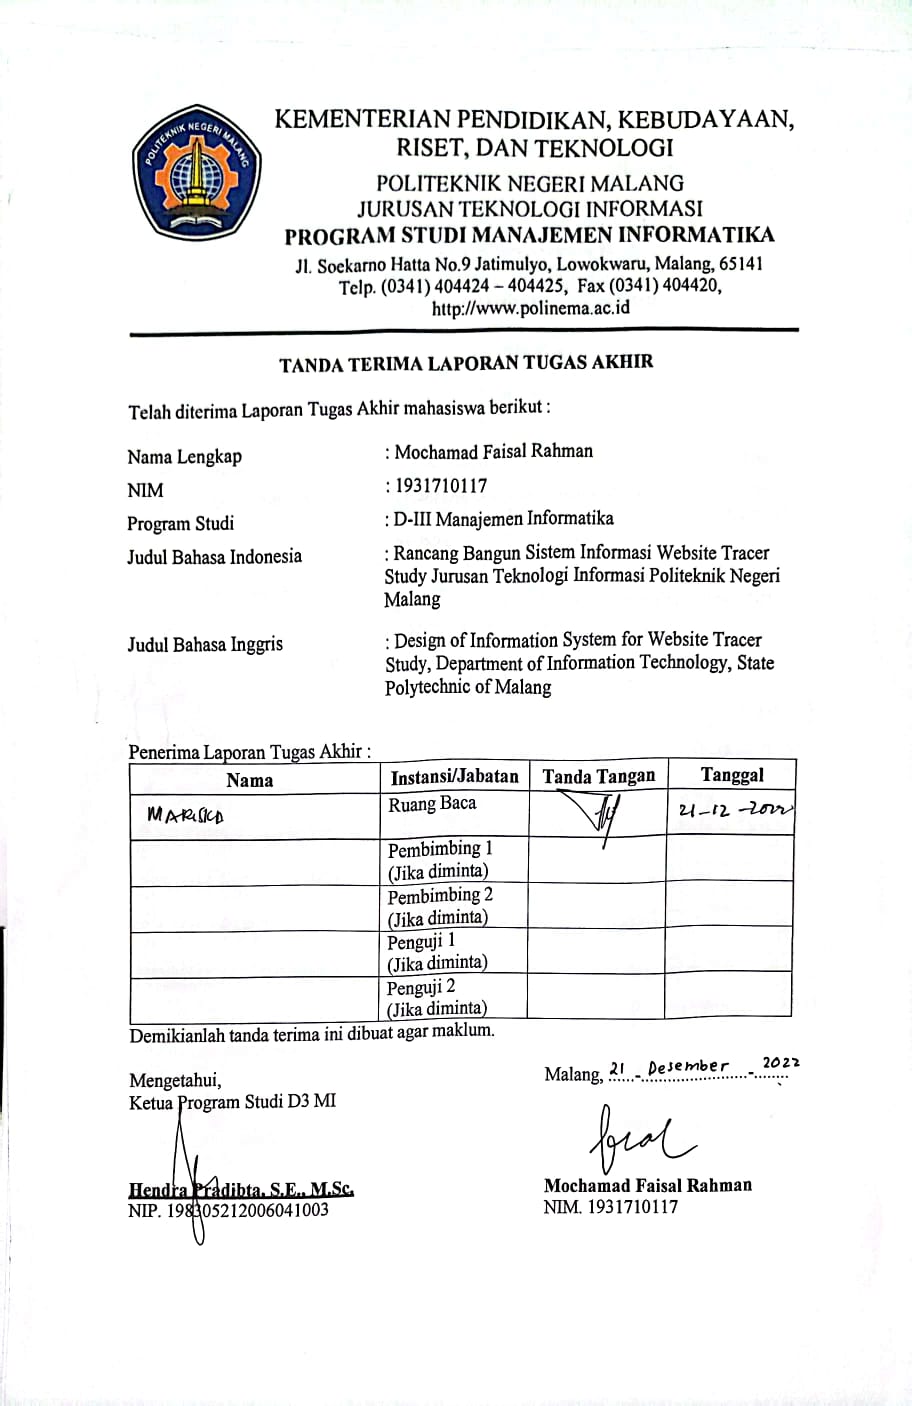 POLITEKNIK NEGERI MALANG
KEMENTERIAN PENDIDIKAN, KEBUDAYAAN,
RISET, DAN TEKNOLOGI
POLITEKNIK NEGERI MALANG
JURUSAN TEKNOLOGI INFORMASI
PROGRAM STUDI MANAJEMEN INFORMATIKA
Jl. Soekarno Hatta No.9 Jatimulyo, Lowokwaru, Malang, 65141
Telp. (0341) 404424 – 404425, Fax (0341) 404420,
http://www.polinema.ac.id
TANDA TERIMA LAPORAN TUGAS AKHIR
Telah diterima Laporan Tugas Akhir mahasiswa berikut :
Nama Lengkap : Mochamad Faisal Rahman
NIM : 1931710117
Program Studi : D-III Manajemen Informatika
Judul Bahasa Indonesia : Rancang Bangun Sistem Informasi Website Tracer
Study Jurusan Teknologi Informasi Politeknik Negeri
Malang
Judul Bahasa Inggris : Design of Information System for Website Tracer
Study, Department of Information Technology, State
Polytechnic of Malang
Penerima Laporan Tugas Akhir :
Nama Instansi/Jabatan Tanda Tangan Tanggal
Ruang Baca 21-12-2022
Pembimbing 1
(Jika diminta)
Pembimbing 2
(Jika diminta)
Penguji 1
(Jika diminta)
Penguji 2
(Jika diminta)
Demikianlah tanda terima ini dibuat agar maklum.
Malang, 21 - Desember - 2022
Mengetahui,
Ketua Program Studi D3 MI
Hendra Pradibta, S.E., M.Sc.
NIP. 198305212006041003
Mochamad Faisal Rahman
NIM. 1931710117